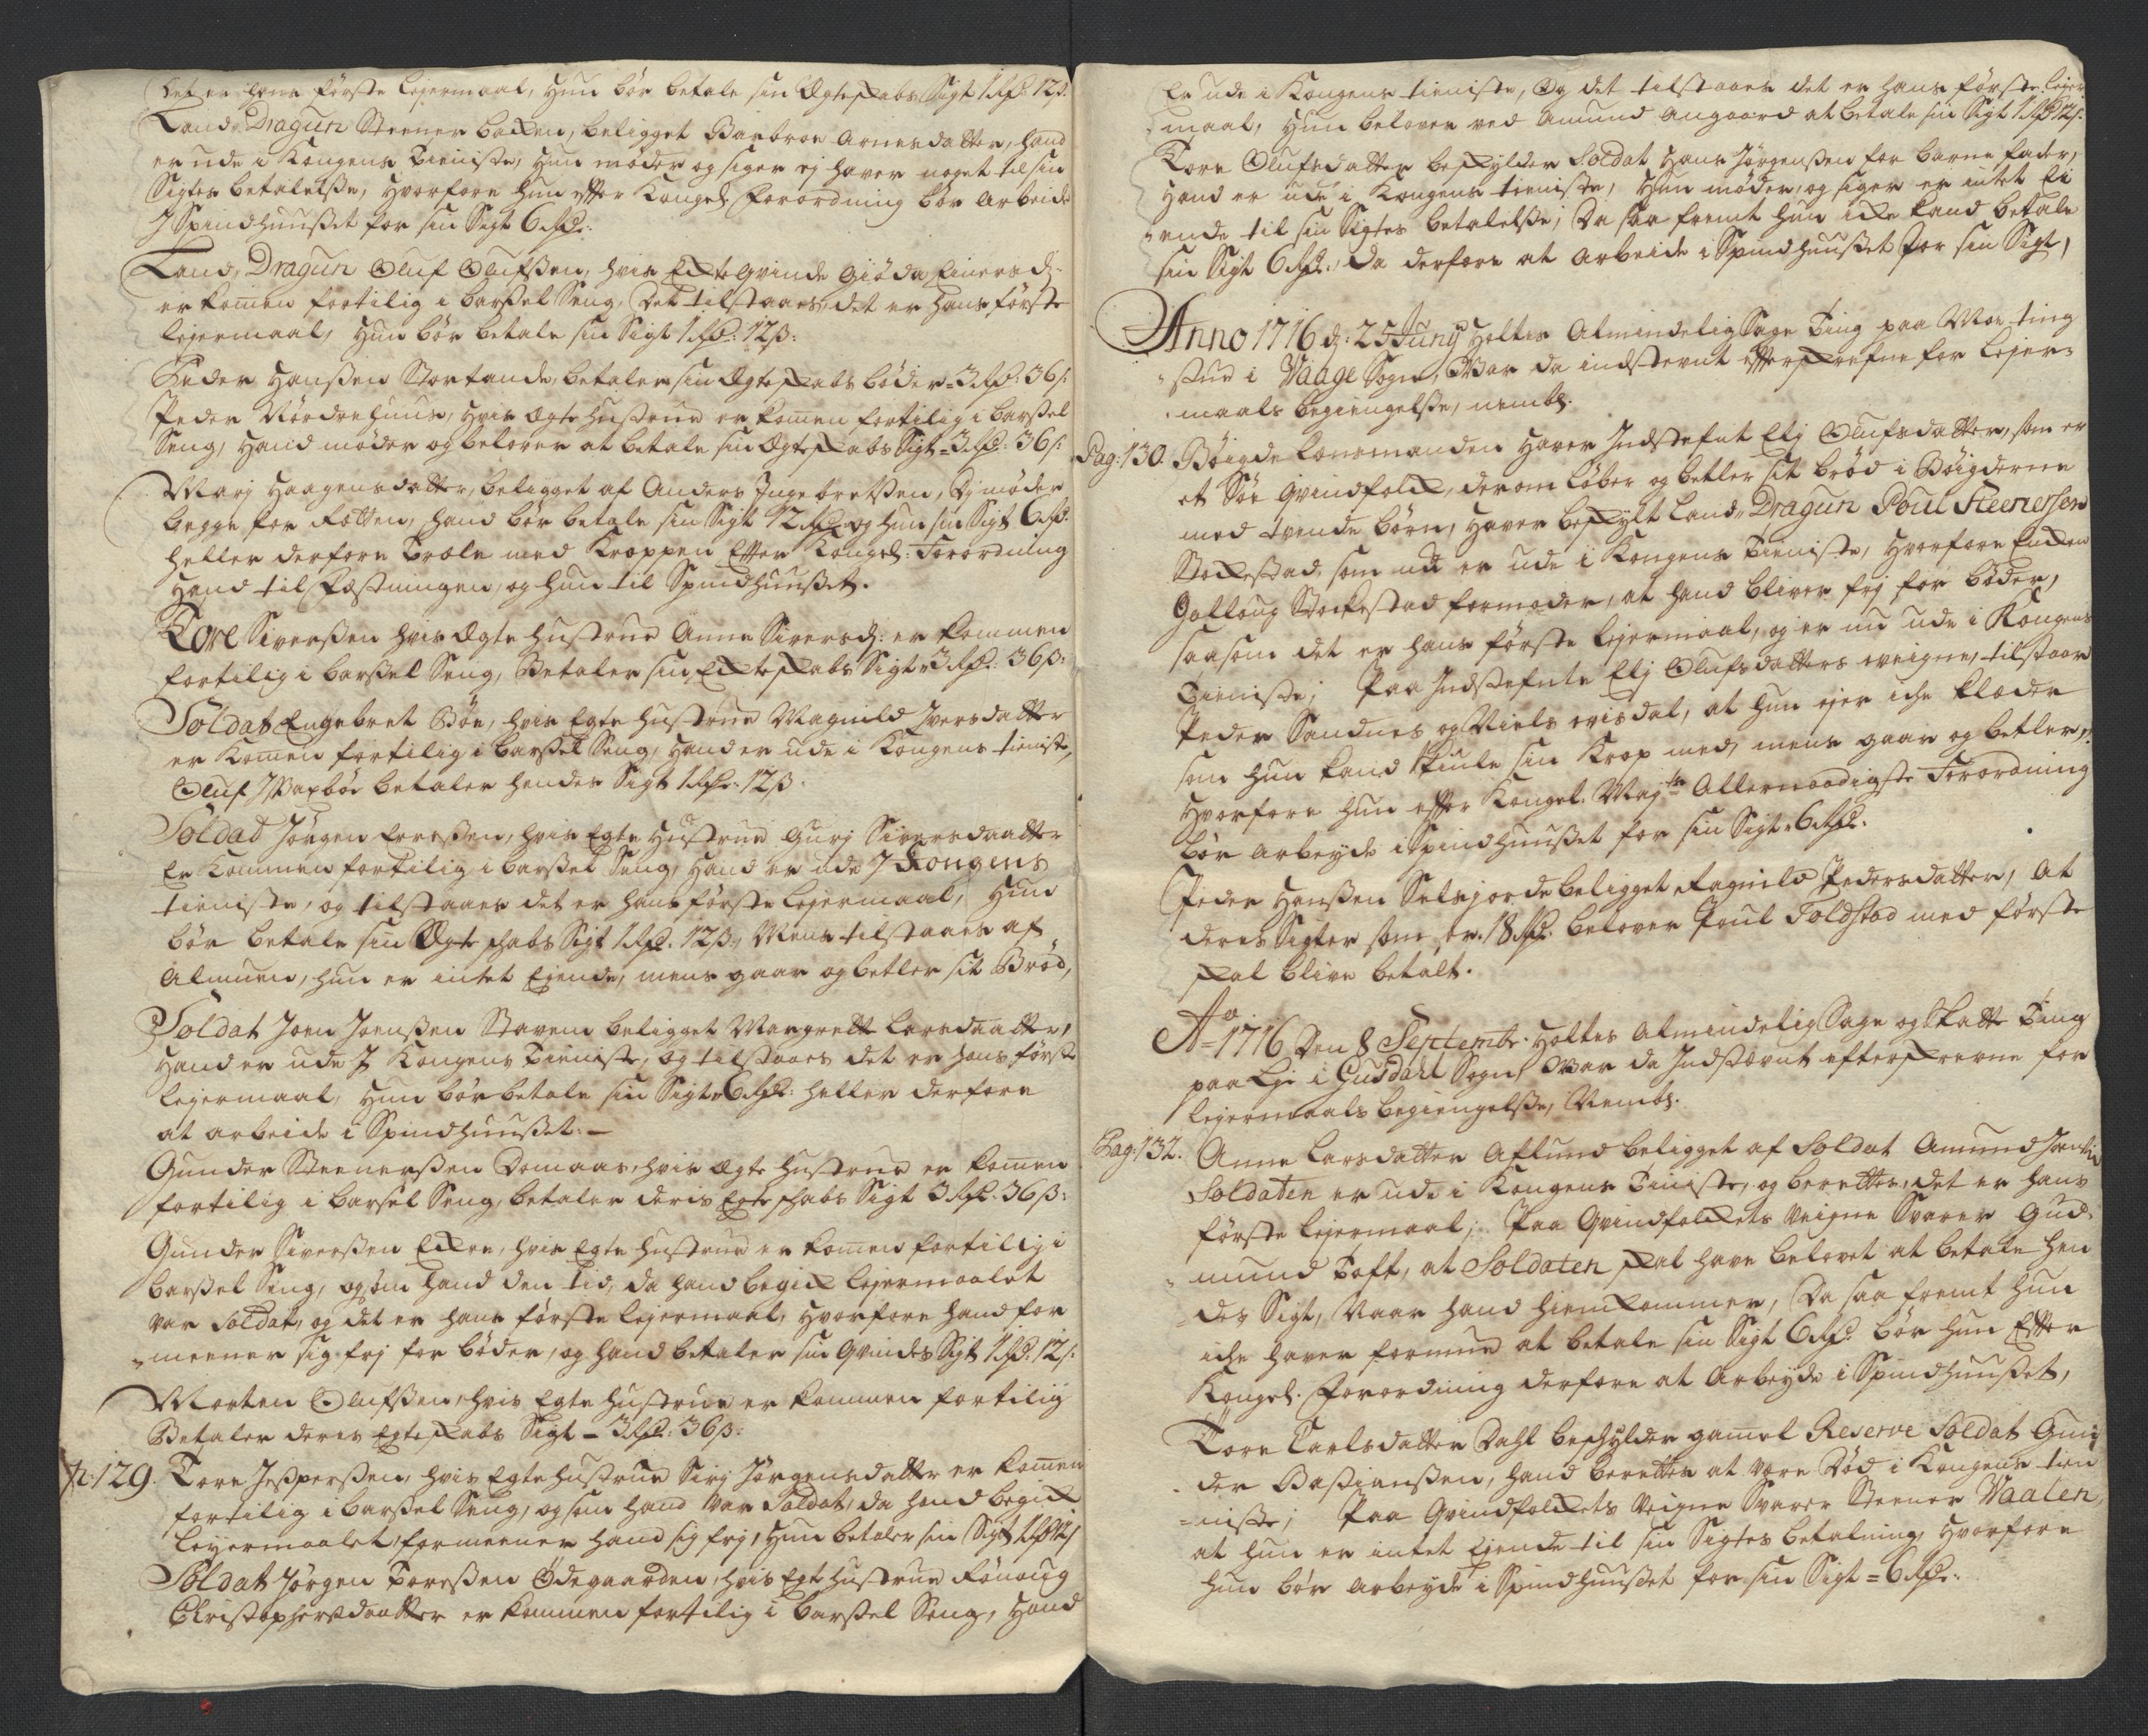 Det er hans första Lejermaal, Hun bör betale sin Ægteskabs Sigt 1 Rd: 12 s:
Land Dragun Steener bacKen, beligget Barbroe Arnesdatter, hand
er ude i Kongens Tieniste, Hun möder og siger ej haver noget til sin
Sigtes betalelße, Hvorfore Hun effter Kongel. Forordning bör Arbeide
I Spindhuußet for sin Sigt 6 Rd:
Land Dragun Oluf Olufßen, hvis Ecktegvinde Giöda Einersd:
er kom̄en fortilig i barßel Seng, Det tilstaaes, det er Hans förste
Lejermaal, Hun bör betale sin Sigt 1 Rd: 12 ß:
Peder Hanßen Stortande, betaler sin Ægteskabs böder = 3 Rd: 36 s:
Peder Nördrehuus, Hvis Ægte Hustrue er kom̄en fortilig i barßel
Seng, Hand möder og belover at betale sin Ægteskabs Sigt = 3 Rd: 36 s:
Marj Haagensdatter, beligget af Anders Ingebretßen, Dj möder
begge for Rætten, Hand bör betale sin Sigt 12 Rd og Hun sin Sigt 6 Rd.
heller derfore Træle med Kroppen Efter Kongel: Forordning
Hand til Fæstningen, og Hun til Spindhuußet.
Tore Siverßen hvis Ægte Hustrue Anne Siversd: er kommen
fortilig i barßel Seng, Betaler sin Ecteskabs Sigt 3 Rd: 36 ß:
Soldat Engebret Böe, hvis Egte Hustrue Magnild Iversdatter
er kom̄en fortilig i barßel Seng, Hand er ude i Kongens tieniste,
Oluf Waxböe betaler hendes Sigt 1 Rd: 12 ß.
Soldad Jörgen Erreßen, hvis Egte Hustrue Gurj Siversdaatter
Er Kommen fortilig i barßel Seng, Hand er ude I Kongens
tieniste, og tilstaaes det er hans förste Lejermaal, Hun
bör betale sin Ægte schabs Sigt 1 Rd. 12 ß, Mens tilstaaes af
Almuen, Hun er intet Eiende, mens gaar og betler sit Bröd,
Soldat Joen Joenßen Stavem beligget Margrette Larsdaatter,
Hand er ude I Kongens Tieniste, og tilstaaes det er Hans förste
Lejermaal, Hun bör betale sin Sigt 6 Rd: heller derfore
at arbeide i Spindhuußet: —
Gunder Steenerßen Domaas, hvis Ægte Hustrue er kom̄en
fortilig i barsel Seng, betaler deris Egte schabs Sigt 3 Rd: 36 ß:
Gunder Siverßen Eckre, hvis Egte Hustrue er kom̄en fortilig i
barßel Seng, og som Hand den Tid, da hand begick Lejermaalet
var Soldat, og det er hans förste Lejermaal, Hvorfore Hand for
meener sig frj for böder, og Hand betaler sin Qvindes Sigt 1 Rd: 12 s:
Morten Olufßen, hvis Egte Hustrue er kommen fortilig
Betaler deres Egteskabs Sigt – 3 Rd: 36 ß:
P: 129. Tore Jeßperßen, hvis Egte Hustrue Sirj Jörgensdatter er kom̄en
fortilig i barßel Seng, og som Hand var Soldat, da Hand begick
Lejermaalet, formeener Hand sig frj, Hun betaler sin Sigt 1 Rd 12 s
Soldat Jörgen Toreßen Ödegaarden, hvis Egt Hustrue Rönoug
Christophersdaatter er kommen fortilig i barßel Seng, Hand
Er ude i Kongens tieniste, Og det tilstaaes det er hans förste Lejer
maal, Hun belover ved Amund Angaard at betale sin Sigt 1 Rd 12 s:
Tore Olufsdatter beskylder Soldat Hans Jörgenßen for barne fader,
Hand er ude i Kongens tieniste, Hun möder, og siger er intet Ei
ende til sin Sigtes betalelße, Da saa fremt Hun icke kand betale
sin Sigt 6 Rd:, Da derfore at Arbeide i Spindhuußet for sin Sigt,
Anno 1716 d: 25 Junij Holtes Almindelig Sage Ting paa Moe ting
stue i Vaage Sogn, Var da indstevnt efterskrefne for Lejer-
maals begiengelße, nembl.
Pag: 130. Böigde Lensmanden Haver Indstefnt Elj Olufsdatter, som er
et Sör Qvindfolck, der om Löber og betler sit bröd i Böigderne
med tvende börn, Haver beskylt Land Dragun Poul Steenersen
Stockestad, som nu er ude i Kongens Tieniste, Hvorfore Encken
Gollaug Stockestad formoder, at Hand bliver frj for böder,
saasom det er hans förste Lejermaal, og er nu ude i Kongens
Tieniste; Paa Indstefnte Elj Olufsdatters veigne, tilstaar
Peder Sandnes og Niels Qvisdal, at Hun ejer iche Klæder
som Hun kand skiule sin Krop med, mens gaar og betler,
Hvorfore Hun effter Kongel. Maj:ts Allernaadigste Forordning
bör Arbeyde i Spindhuußet for sin Sigt 6 Rd.
Peder Hanßen Selsjorde beligget Ragnild Pedersdatter, At
deres Sigter som er 18 Rd: belover Poul Toldstad med förste
skal blive betalt.
Ao 1716 Den 8 Septembr: Holtes Almindelig Sage og Skatte Ting
paa Lje i Gusdahl Sogn, War da Indstævnt efterskrevne for
Lejermaals begiengelße, Nembl.
Pag: 132. Anne Larsdatter Aslund beligget af Soldat Amund Joenlie
Soldaten er ude i Kongens Tieniste, og berettes, det er hans
förste Lejermaal; Paa Qvindfolckets Veigne Svarer Gud-
mund Toft, at Soldaten skal have belovet at betale Hen
des Sigt, Naar Hand hiemkommer, Da saa fremt Hun
iche haver formue at betale sin Sigt 6 Rd. bör Hun Efter
Kongel. Forordning derfore at Arbeyde i Spindhuußet,
Tore Carlsdatter Dahl beschylder gam̄el Reserve Soldat Gun
der Baßianßen, Hand berettes at være Död i Kongens tien
niste; Paa Qvindfolckets Veigne Svarer Steener Vaalen,
at Hun er intet Ejende til sin Sigtes betalning, Hvorfore
Hun bör Arbeyde i Spindhuußet for sin Sigt = 6 Rd: